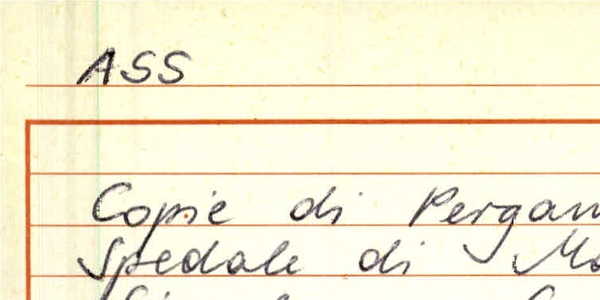 ASS
Copie di Pergam
Spedale di Ma